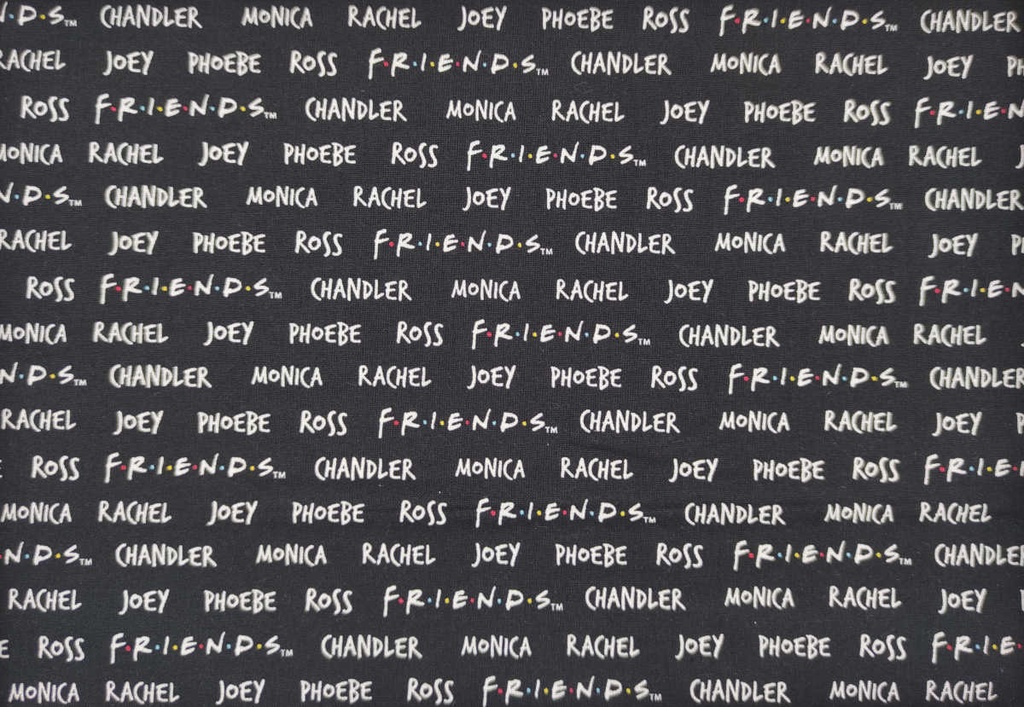 N·D·S™ CHANDLER MONICA RACHEL JOEY PHOEBE ROSS F·R·I·E·N·D·S™ CHANDLER
RACHEL JOEY PHOEBE ROSS F·R·I·E·N·D·S™ CHANDLER MONICA RACHEL JOEY PH
ROSS F·R·I·E·N·D·S™ CHANDLER MONICA RACHEL JOEY PHOEBE ROSS F·R·I·E·N
MONICA RACHEL JOEY PHOEBE ROSS F·R·I·E·N·D·S™ CHANDLER MONICA RACHEL J
N·D·S™ CHANDLER MONICA RACHEL JOEY PHOEBE ROSS F·R·I·E·N·D·S™ CHANDLER
RACHEL JOEY PHOEBE ROSS F·R·I·E·N·D·S™ CHANDLER MONICA RACHEL JOEY P
ROSS F·R·I·E·N·D·S™ CHANDLER MONICA RACHEL JOEY PHOEBE ROSS F·R·I·E·N
MONICA RACHEL JOEY PHOEBE ROSS F·R·I·E·N·D·S™ CHANDLER MONICA RACHEL
N·D·S™ CHANDLER MONICA RACHEL JOEY PHOEBE ROSS F·R·I·E·N·D·S™ CHANDLER
RACHEL JOEY PHOEBE ROSS F·R·I·E·N·D·S™ CHANDLER MONICA RACHEL JOEY P
E ROSS F·R·I·E·N·D·S™ CHANDLER MONICA RACHEL JOEY PHOEBE ROSS F·R·I·E·
MONICA RACHEL JOEY PHOEBE ROSS F·R·I·E·N·D·S™ CHANDLER MONICA RACHEL
N·D·S™ CHANDLER MONICA RACHEL JOEY PHOEBE ROSS F·R·I·E·N·D·S™ CHANDLER
RACHEL JOEY PHOEBE ROSS F·R·I·E·N·D·S™ CHANDLER MONICA RACHEL JOEY
E ROSS F·R·I·E·N·D·S™ CHANDLER MONICA RACHEL JOEY PHOEBE ROSS F·R·I·E·
MONICA RACHEL JOEY PHOEBE ROSS F·R·I·E·N·D·S™ CHANDLER MONICA RACHEL